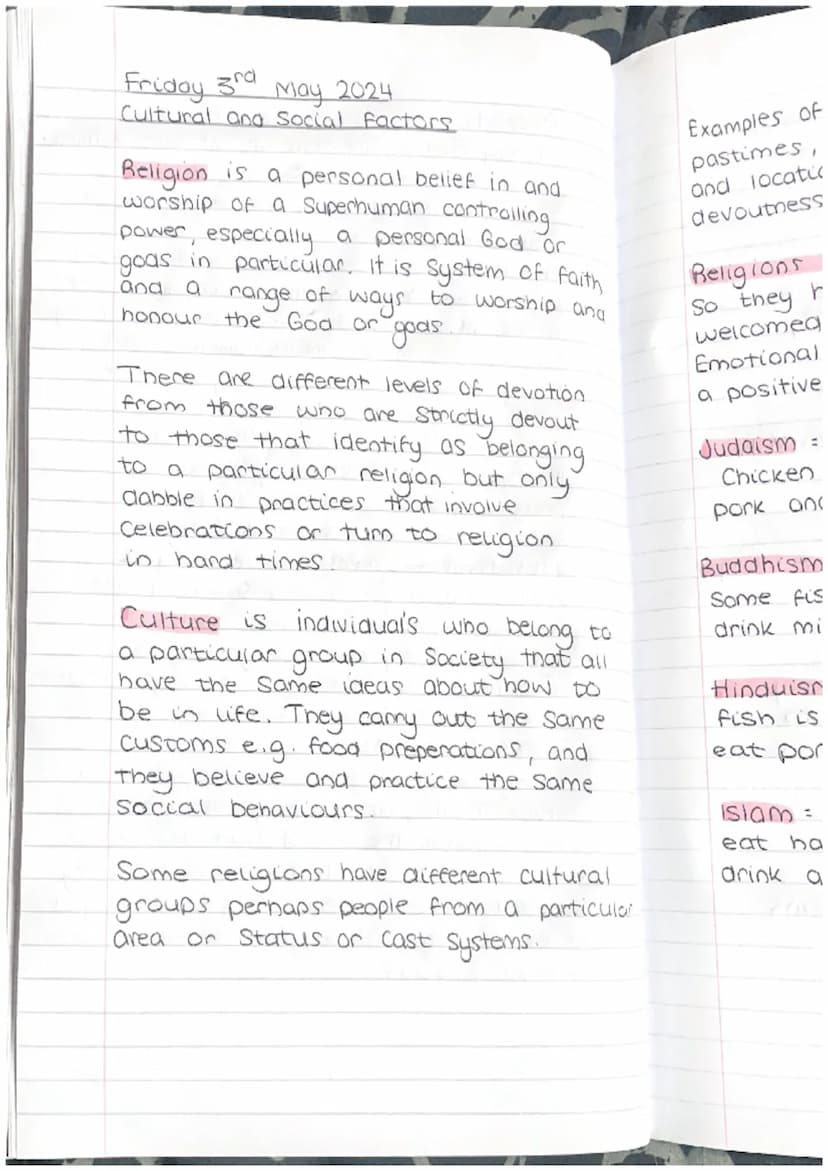 Friday 3rd May 2024
Cultural and Social Factors
Religion is a personal belief in and
worship of a Superhuman controlling
power, especially a personal God or
gods in particular. It is System of faith
and a range of ways to worship and
honour the God or gods.
There are different levels of devotion
from those who are strictly devout
to those that identify as belonging
to a particular religion but only
dabble in practices that involve
celebrations or turn to religion
in hard times.
Culture is individual's who belong to
a particular group in Society that all
have the same ideas about how to
be in life. They carry out the same
customs e.g. food preperations, and
they believe and practice the same
social behaviours.
Some religions have different cultural
groups perhaps people from a particular
area or Status or Cast Systems.
Examples of
pastimes,
and
devoutness
Religions
So they
welcomed
Emotional
a positive
Judaism =
Chicken
pork
Buddhism
Some
drink
fish is
eat
Islam =
eat
drink